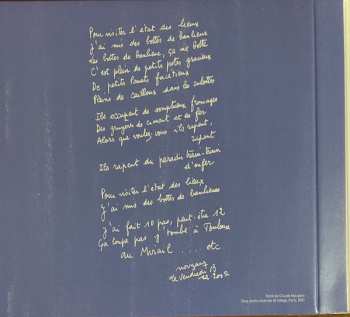 Pour visiter l'état des lieux
J'ai mis des bottes de banlieue
Les bottes de banlieue, ça me botte
C'est plein de petits potes graves
De petits Poucets facétieux
Pleins de cailloux dans les culottes
Ils occupent de somptueux fromages
Des gruyères de ciment et de fer
Alors que voulez-vous ils rapent,
rapent
Ils rapent du paradis train-train
d'enfer
Pour visiter l'état des lieux
J'ai mis des bottes de banlieues
J'ai fait 10 pas, peut-être 12
Ça loupe pas je tombe à Toulouse
au Mirail ...... etc
nougaro
le Vendredi 13